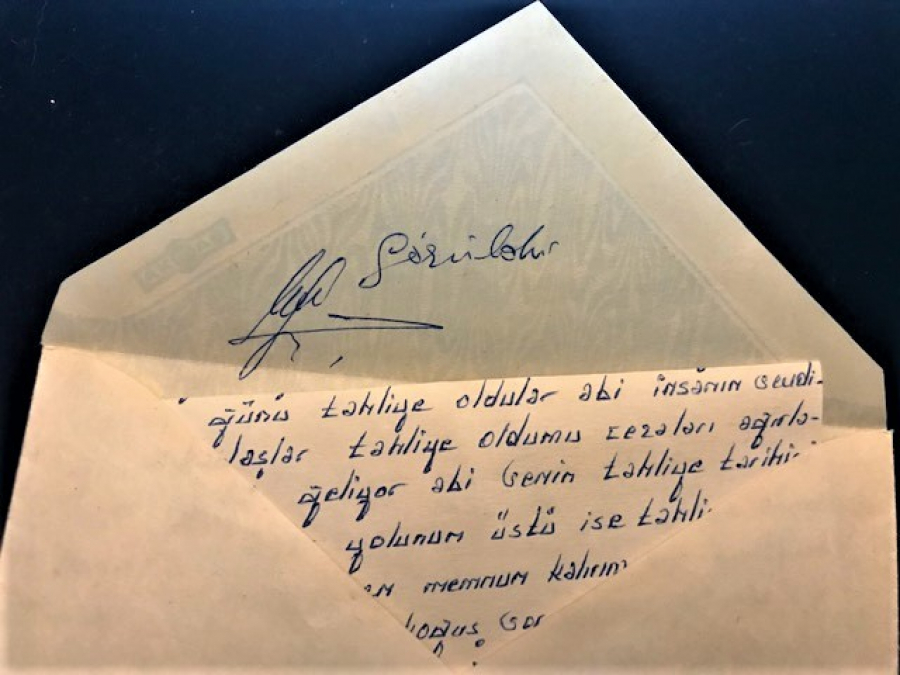 Görüldü
günü tahliye oldular abi insanın sevdi-
laşlar tahliye oldumu cezaları ağırla-
geliyor abi senin tahliye tarihi
yolunun üstü ise tahli
memnun kalırım
koğuş